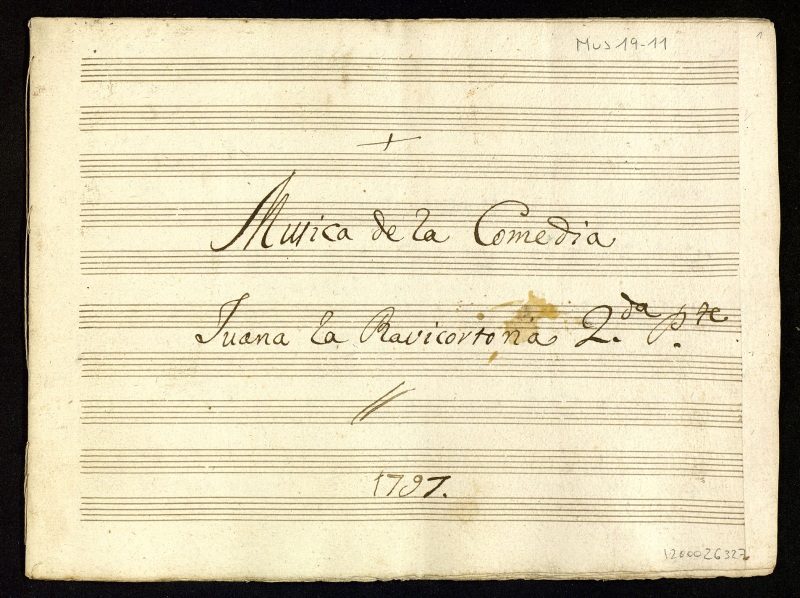 Mus 19-11
1
+
Musica de la Comedia
Juana la Ravicortona 2.da p.te
1797.
1200026327